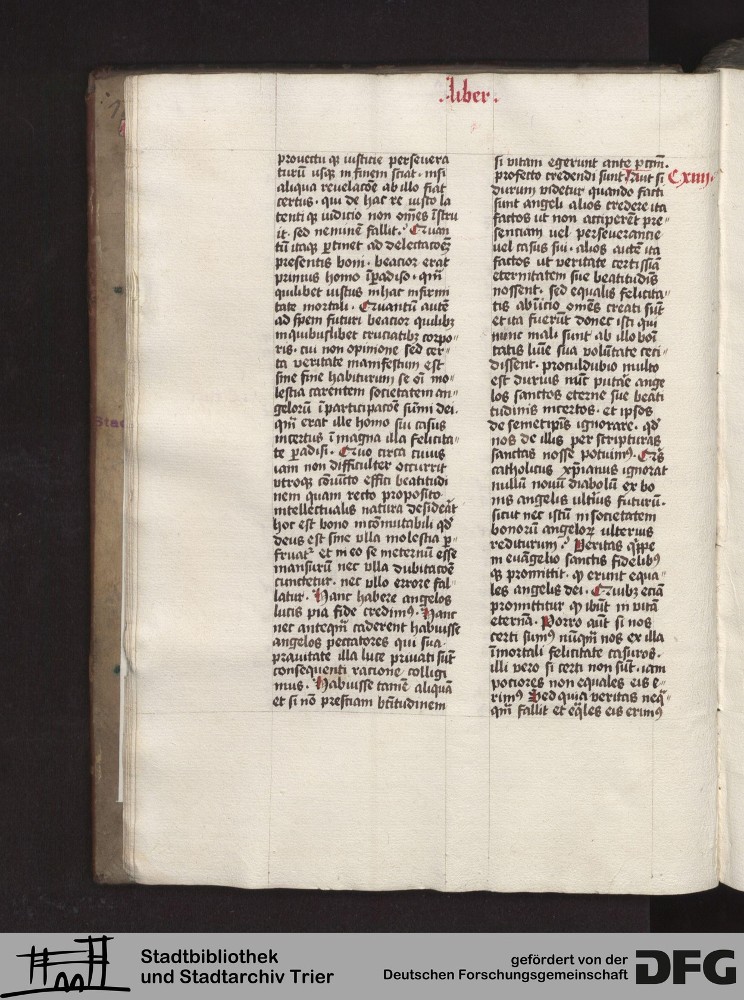 .liber.
provectu q̃ iusticie persevera
turũ usq̃ in finem sciat. nisi
aliqua revelacõe ab illo fiat
certus. qui de hac re iusto la
tenti q̃ iudicio non om̃es ĩstru
it. sed neminẽ fallit. Quan
tũ itaq̃ ꝑtinet ad delectacõeʒ
presentis boni. beacior erat
primus homo ĩ ꝑadiso. qm̃
quilibet iustus in hac infirmi
tate mortali. Quantũ autẽ
ad spem futuri beacior quilibʒ
in quibuslibet cruciatibʒ corpo
ris. cui non opinione sed cer
ta veritate manifestum est
sine fine habiturum se oĩ mo〃
lestia carentem societatem an〃
gelorũ ĩ participacõe sũmi dei.
qm̃ erat ille homo sui casus
incertus ĩ magna illa felicita〃
te ꝑadisi. Quo circa cuivis
iam non difficulter occurrit
utroq̃ coniũcto effici beatitudi
nem quam recto proposito
intellectualis natura desiderat
hoc est bono incõmutabili qđ
deus est sine ulla molestia ꝑ
fruatᷣ et in eo se in eternũ esse
mansurũ nec ulla dubitacõe
cunctetur. nec ullo errore fal
latur. Hanc habere angelos
lucis pia fide credimꝰ. Hanc
nec anteqm̃ caderent habuisse
angelos peccatores qui sua
pravitate illa luce privati sũt
consequenti racione colligi
mus. Habuisse tamẽ aliquã
et si nõ presciam bt̃itudinem
si vitam egerunt ante pctm̃.
profecto credendi sunt. Aut si Cxiiij.
durum videtur quando facti
sunt angeli alios credere ita
factos ut non acciperẽt pre〃
scentiam vel perseverantie
vel casus sui. alios autẽ ita
factos ut veritate certissiã
eternitatem sue beatitudĩs
nossent. sed equalis felicita〃
tis ab inicio om̃es creati sũt
et ita fuerũt donec isti qui
nunc mali sunt ab illo boĩ
tatis lũie sua volũtate ceci〃
dissent. proculdubio multo
est durius nũc putãe ange
los sanctos eterne sue beati
tudinis incertos. et ipsos
de semetipsis ignorare. qđ
nos de illis per scripturas
sanctas nosse potuimꝰ. Qis
catholicus xp̃ianus ignorat
nullũ novũ diabolũ ex bo
nis angelis ultius futurũ.
sicut nec istũ in societatem
bonorũ angeloꝝ ulterius
rediturum. Veritas q̃ppe
in euãgelio sanctis fidelibꝰ
q̃ promittit. ꝙ erunt equa〃
les angelis dei. Quibʒ eciã
promittitur ꝙ ibũt in vitã
eternã. Porro aũt si nos
certi sumꝰ nũqm̃ nos ex illa
ĩmortali felicitate casuros.
illi vero si certi non sũt. iam
potiores non equales eis e〃
rimꝰ Sed quia veritas neq̃〃
qm̃ fallit et eq̃les eis erimꝰ
Stadtbibliothek
und Stadtarchiv Trier
gefördert von der
Deutschen Forschungsgemeinschaft
DFG